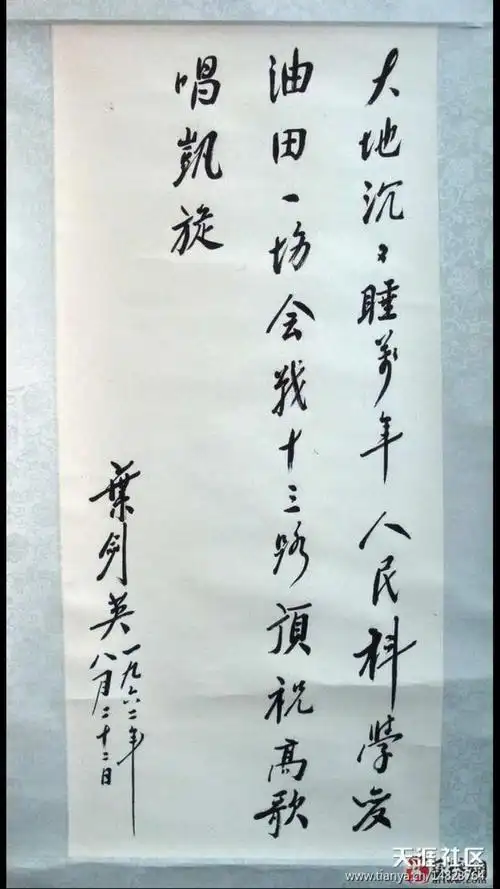 大地沉〻睡万年人民科学发
油田一场会战十三路預祝高歌
唱凱旋
葉剑英
一九六二年
八月二十二日
天涯社区